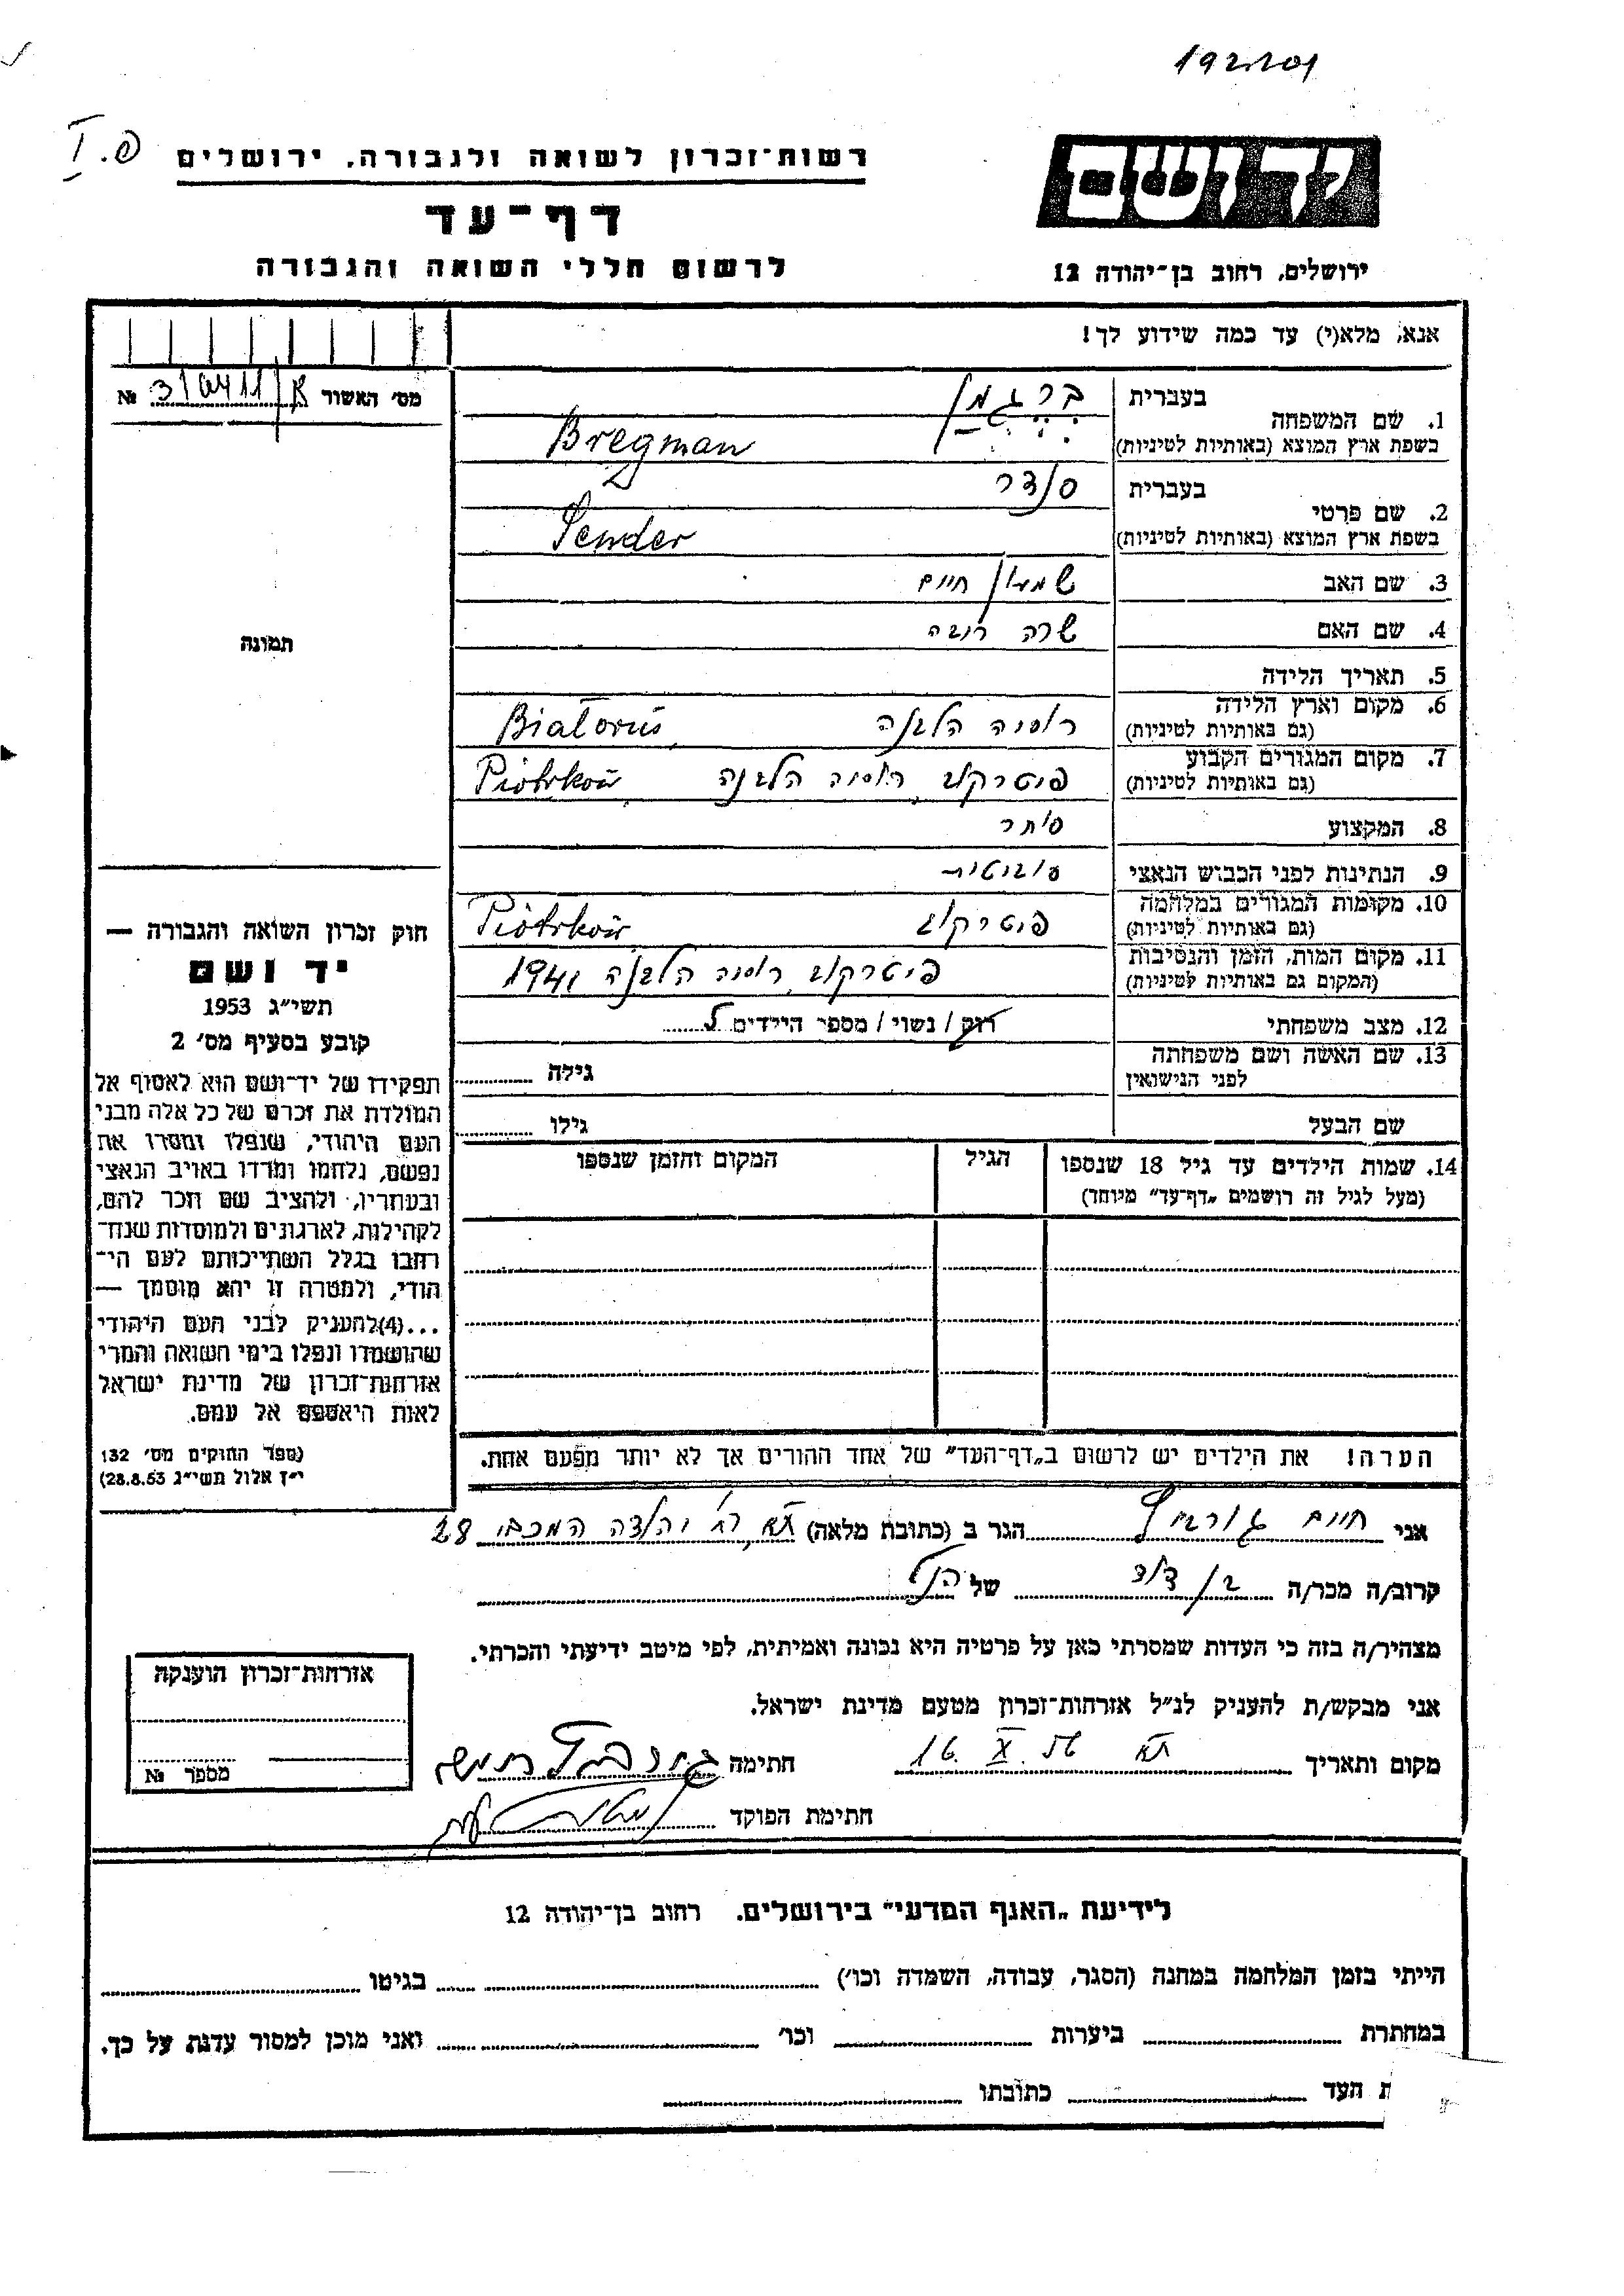 192201
פ. I
רשות־זכרון לשואה ולגבורה. ירושלים
יד ושם
דף־עד
לרשום חללי השואה והגבורה
ירושלים, רחוב בן־יהודה 12
אנא, מלא(י) עד כמה שידוע לך!
מס׳ האשור №
1. שם המשפחה בעברית ברגמן
בשפת ארץ המוצא (באותיות לטיניות) Bregman
2. שם פרטי בעברית סנדר
בשפת ארץ המוצא (באותיות לטיניות) Sender
3. שם האב שמעון חיים
4. שם האם שרה
5. תאריך הלידה
6. מקום וארץ הלידה רוסיה הלבנה Białoruś
(גם באותיות לטיניות)
7. מקום המגורים הקבוע פיוטרקוב, רוסיה הלבנה Piotrkow
(גם באותיות לטיניות)
8. המקצוע סוחר
9. הנתינות לפני הכבוש הנאצי סוביטית
10. מקומות המגורים במלחמה פיוטרקוב Piotrkow
(גם באותיות לטיניות)
11. מקום המות, הזמן והנסיבות פיוטרקוב, רוסיה הלבנה 1941
(המקום גם באותיות לטיניות)
12. מצב משפחתי רוק / נשוי / מספר הילדים
13. שם האשה ושם משפחתה גילה
לפני הנישואין
שם הבעל גילו
14. שמות הילדים עד גיל 18 שנספו הגיל המקום והזמן שנספו
(מעל לגיל זה רושמים „דף־עד״ מיוחד)
הערה! את הילדים יש לרשום ב„דף־העד״ של אחד ההורים אך לא יותר מפעם אחת.
תמונה
חוק זכרון השואה והגבורה —
יד ושם
תשי״ג 1953
קובע בסעיף מס׳ 2
תפקידו של יד־ושם הוא לאסוף אל
המולדת את זכרם של כל אלה מבני
העם היהודי, שנפלו ומסרו את
נפשם, נלחמו ומרדו באויב הנאצי
ובעוזריו, ולהציב שם וזכר להם,
לקהילות, לארגונים ולמוסדות שנח־
רבו בגלל השתייכותם לעם הי־
הודי, ולמטרה זו יהא מוסמך —
...(4)להעניק לבני העם היהודי
שהושמדו ונפלו בימי השואה והמרי
אזרחות־זכרון של מדינת ישראל
לאות היאספם אל עמם.
(ספר החוקים מס׳ 132
י״ז אלול תשי״ג 28.8.53)
אני חיים הגר ב (כתובת מלאה) ת״א, רח׳ יהודה המכבי 28
קרוב/ה מכר/ה בן דוד של הנ״ל
מצהיר/ה בזה כי העדות שמסרתי כאן על פרטיה היא נכונה ואמיתית, לפי מיטב ידיעתי והכרתי.
אני מבקש/ת להעניק לנ״ל אזרחות־זכרון מטעם מדינת ישראל.
מקום ותאריך ת״א 16. X חתימה
חתימת הפוקד
אזרחות־זכרון הוענקה
מספר №
לידיעת „האגף המדעי״ בירושלים. רחוב בן־יהודה 12
הייתי בזמן המלחמה במחנה (הסגר, עבודה, השמדה וכו׳) בגיטו
במחתרת ביערות וכו׳ ואני מוכן למסור עדות על כך.
ת העד כתובתו